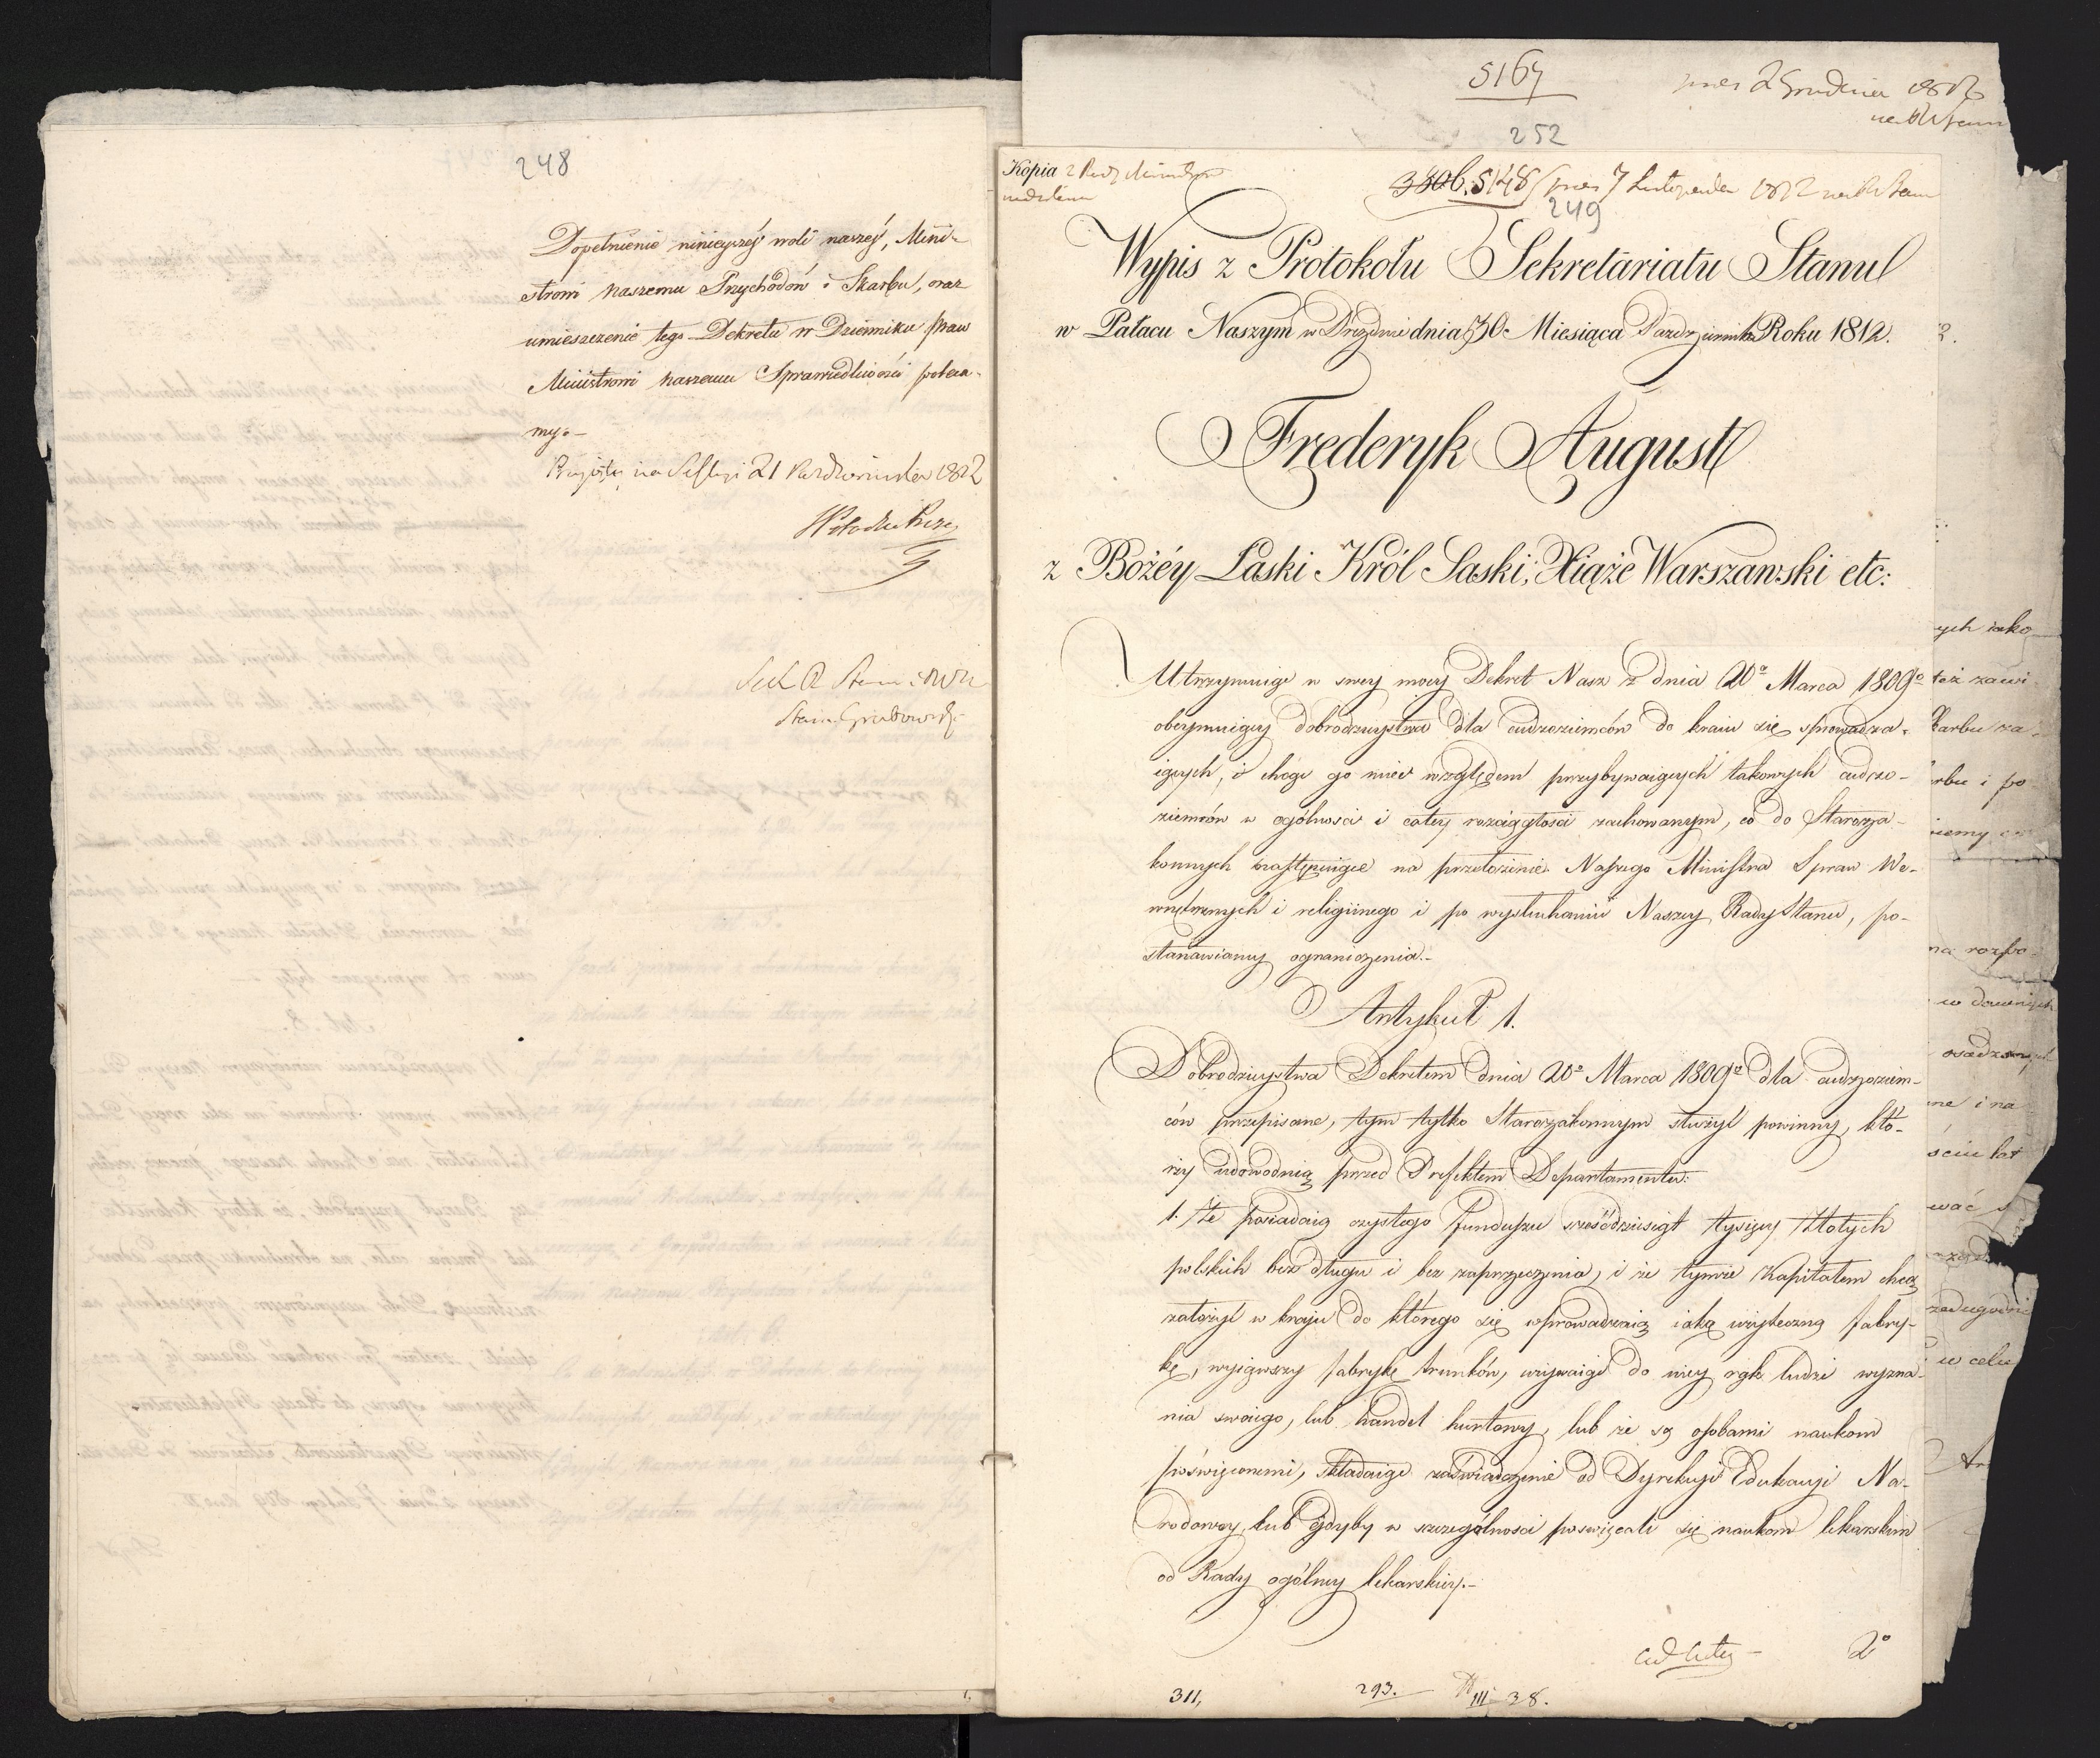 248
Dopełnienie ninieyszéy woli naszéy, Mini-
strowi naszemu Przychodów i Skarbu, oraz
umieszczenie tego Dekretu w Dzienniku praw
Ministrowi naszemu Sprawiedliwości poleca-
my.-
na Sessyi 21 Października 1812
Stan. Grabowski
5167
2 Grudnia 1812
252
Kopia z Rady Ministrów
5148 7 Listopada 1812
249
Wypis z Protokołu Sekretariatu Stanu
w Pałacu Naszym w Dreznie dnia 30 Miesiąca Października Roku 1812.
Fryderyk August
z Bożéy Łaski Król Saski, Xiąże Warszawski etc:
Utrzymuiąc w swey mocy Dekret Nasz z dnia 20º Marca 1809º
obeymuiący dobrodzieystwa dla cudzoziemców do kraiu się sprowadza-
iących, i chcąc go mieć względem przybywaiących takowych cudzo-
ziemców w ogólności i całey rozciągłości zachowanym, co do Staroza-
konnych następuiące na przełożenie Naszego Ministra Spraw We-
wnętrznych i religiinego i po wysłuchaniu Naszey Rady Stanu, po-
stanawiamy ograniczenia.-
Artykuł 1.
Dobrodzieystwa Dekretem dnia 20º Marca 1809º dla cudzoziem-
ców przepisane, tym tylko Starozakonnym służyć powinny, któ-
rzy udowodnią przed Prefektem Departamentu:
1. Że posiadaią czystego funduszu sześćdziesiąt tysięcy Złotych
polskich bez długu i bez zaprzeczenia, i że tymże Kapitałem chcą
założyć w kraju do którego się wprowadzaią iaką użyteczną fabry-
kę, wyiąwszy fabrykę trunków, używaiąc do niey rąk ludzi wyzna-
nia swoiego, lub handel hurtowy, lub że są osobami naukom
poświęconemi, składaiąc zaświadczenie od Dyrekcyi Edukacyi Na-
rodowey, lub gdyby w szczególności poswięcali się naukom lekarskim
od Rady ogólney lekarskiey.-
2º
311,
293.
III 38.
ych iako
też zawi
Skarbu za
rbu i po
na rozpo
w dawnych
osadzonych
ne i na
ściu lat
wać
w celu